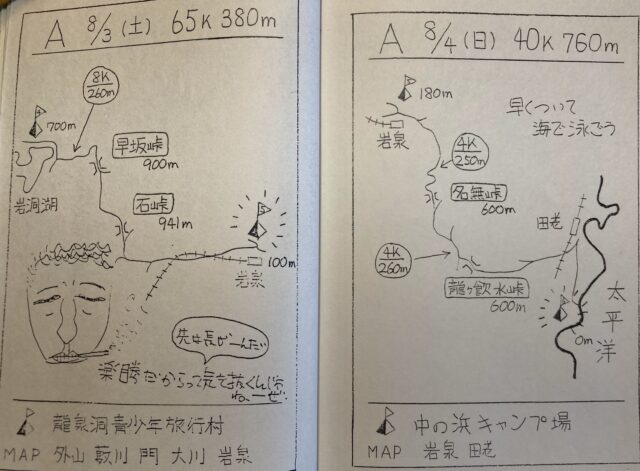 A 8/3(土) 65K 380m
8K
260m
700m
早坂峠
900m
岩洞湖
石峠
941m
100m
岩泉
先は長がーんだ
楽勝だからって気を抜くんじゃ
ねーぜ
龍泉洞青少年旅行村
MAP 外山 藪川 門 大川 岩泉
A 8/4(日) 40K 760m
180m
早くついて
海で泳ごう
岩泉
4K
250m
名無峠
600m
田老
4K
260m
龍ヶ飲水峠
600m
太平洋
0m
中の浜キャンプ場
MAP 岩泉 田老